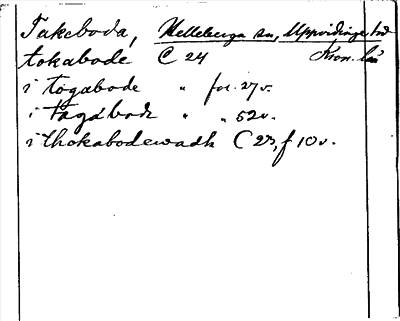 Takeboda, Helleberga sn, Uppvidinge hd
tokabode C 24 Kron. län
i togabode " for. 27v.
i tagabodh " " 52v.
i thokabodewadh C 23, f 10v.